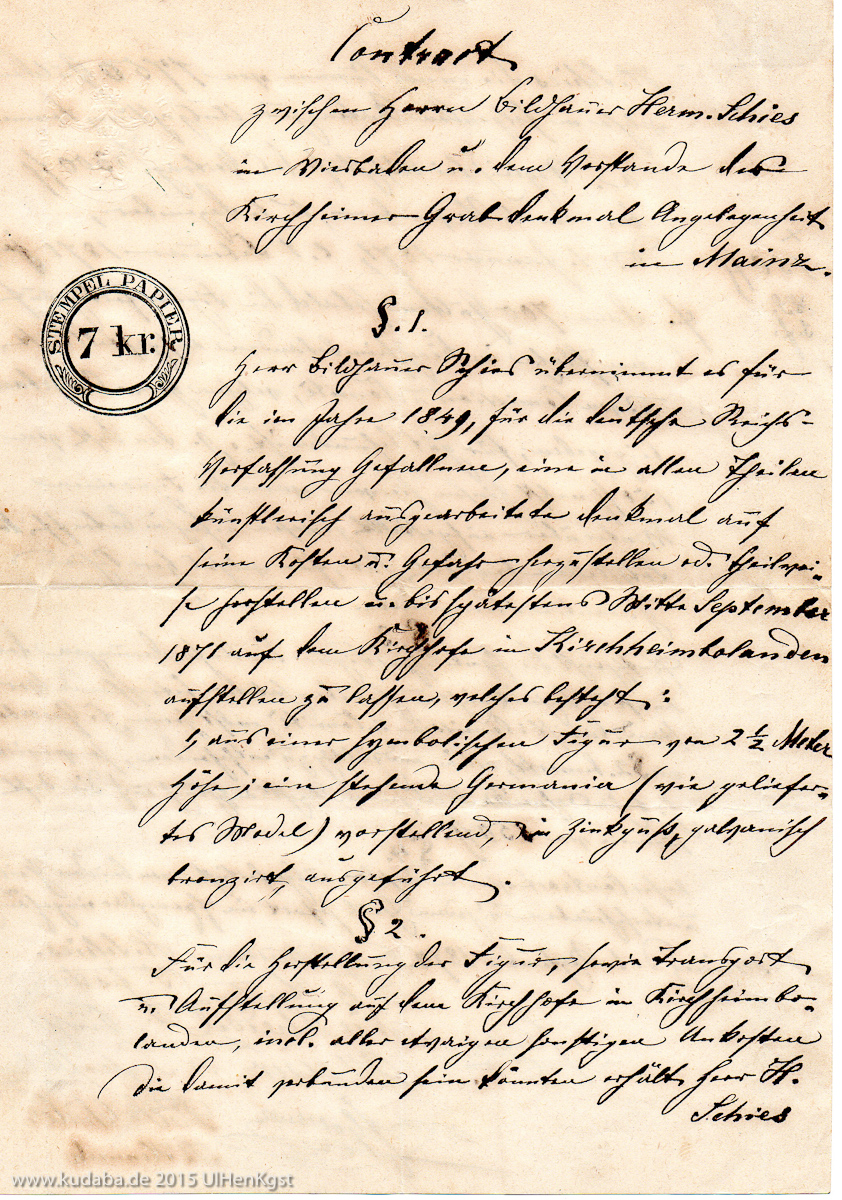 Contract
zwischen Herrn Bildhauer Herm. Schies
in Wiesbaden u. dem Vorstande der
Kirchheimer Grabdenkmal Angelegenheit
in Mainz.
STEMPEL PAPIER
7 kr.
§. 1.
Herr Bildhauer Schies übernimmt es für
die im Jahre 1849, für die deutsche Reichs-
Verfassung Gefallnen, eine in allen Theilen
künstlerisch ausgearbeitete Denkmal auf
seine Kosten u. Gefahr herzustellen od. theilwei-
se herstellen u. bis spätestens Mitte September
1871 auf dem Kirchhofe in Kirchheimbolanden
aufstellen zu lassen, welches besteht:
1, aus einer symbolischen Figur von 2 ½ Meter
Höhe; eine stehende Germania (wie geliefer-
tes Model) vorstellend, in Zinkguß, galvanisch
bronzirt, ausgeführt.
§ 2.
Für die Herstellung der Figur, sowie Transport
u. Aufstellung auf dem Kirchhofe in Kirchheimbo-
landen, incl. aller etwaigen sonstigen Unkosten
die damit verbunden sein könnten erhält Herr H.
Schies
www.kudaba.de 2015 UlHenKgst